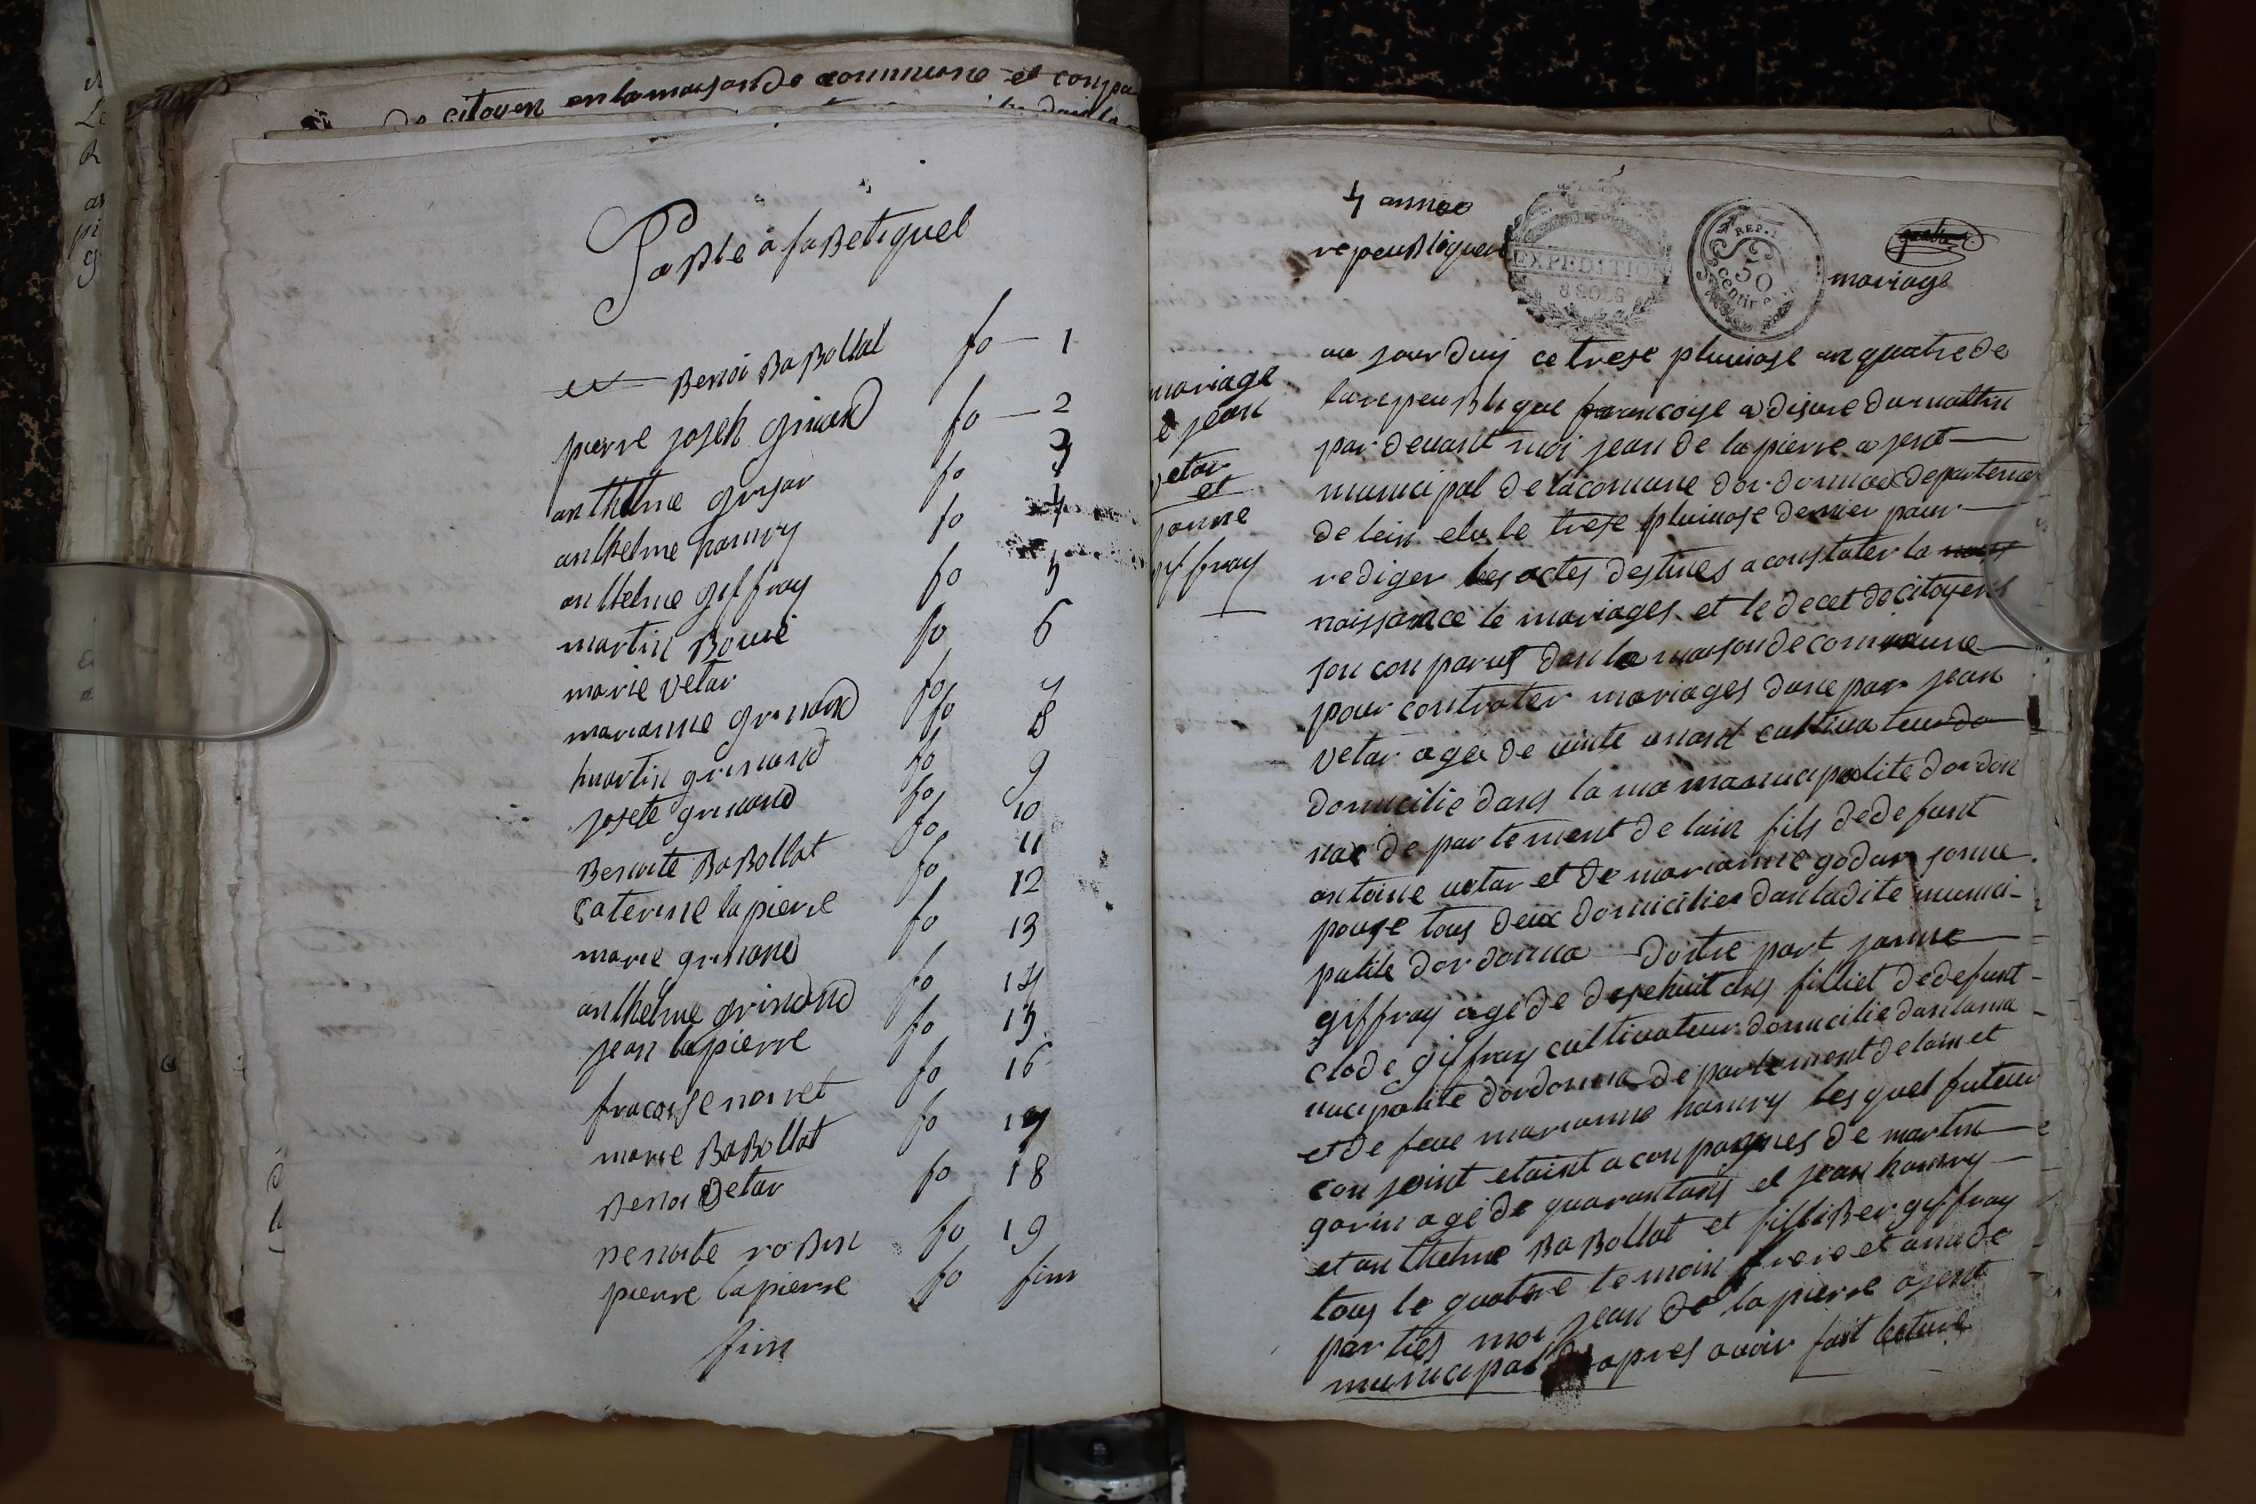 de citoyen en la maison de commune et conpa
Table alfabetiquel
Benoi Babollat fo 1
pierre joseh grinand fo 2
anthelme grisar fo 3
anthelme hanvry fo 4
anthelme giffray fo 5
martin Bouvié fo 6
marie vetar fo 7
marianne grinand fo 8
martin grinand fo 9
josete grinand fo 10
Benoite Babollat fo 11
caterine lapierre fo 12
marie grinand fo 13
anthelme grinand fo 14
jean lapierre fo 15
fracoise noiret fo 16
marie Babollat fo 17
Benoi vetar fo 18
Benoite robin fo 19
pierre lapierre fo fini
fini
4 annee
repeubliquen
EXPEDITION
8 SOLS
REP.
50
centime
mariage
mariage
e jean
vetar
et
janne
giffray
au jourduy ce trese pluviose an quatre de
la repeublique francoise a disure du mattin
par devant moi jean de la pierre ajent
municipal de la comune dordonnax departemen
de lein elu le trese pluviose dernier pour
rediger les actes destines a constater la
naissance le mariages et le decet de citoyens
son conparus dan la maison de commune
pour contrater mariages dune par jean
vetar age de vinte anant cultivateur
domicilie dans la municipalite dordon
nax departement de lain fils dedefunt
antoine vetar et de marianne godar
pouse tous deux domicilies dan ladite munici
palite dordonna dotre part janne
giffray age de desehuit ans filliet dedefunt
clode giffray cultivateur domicilie dan la mu
nicipalite dordonna departement de lain et
et de feue marianne hanvry les quel futeur
conjoint etaint aconpagnes de martin
garin age de quarantans et jean hanvry
et anthelme Babollat et filliber giffray
tous le quatre temoin frere et ami de
parties moi jean de la pierre ajent
municipal apres avoir fait lecture